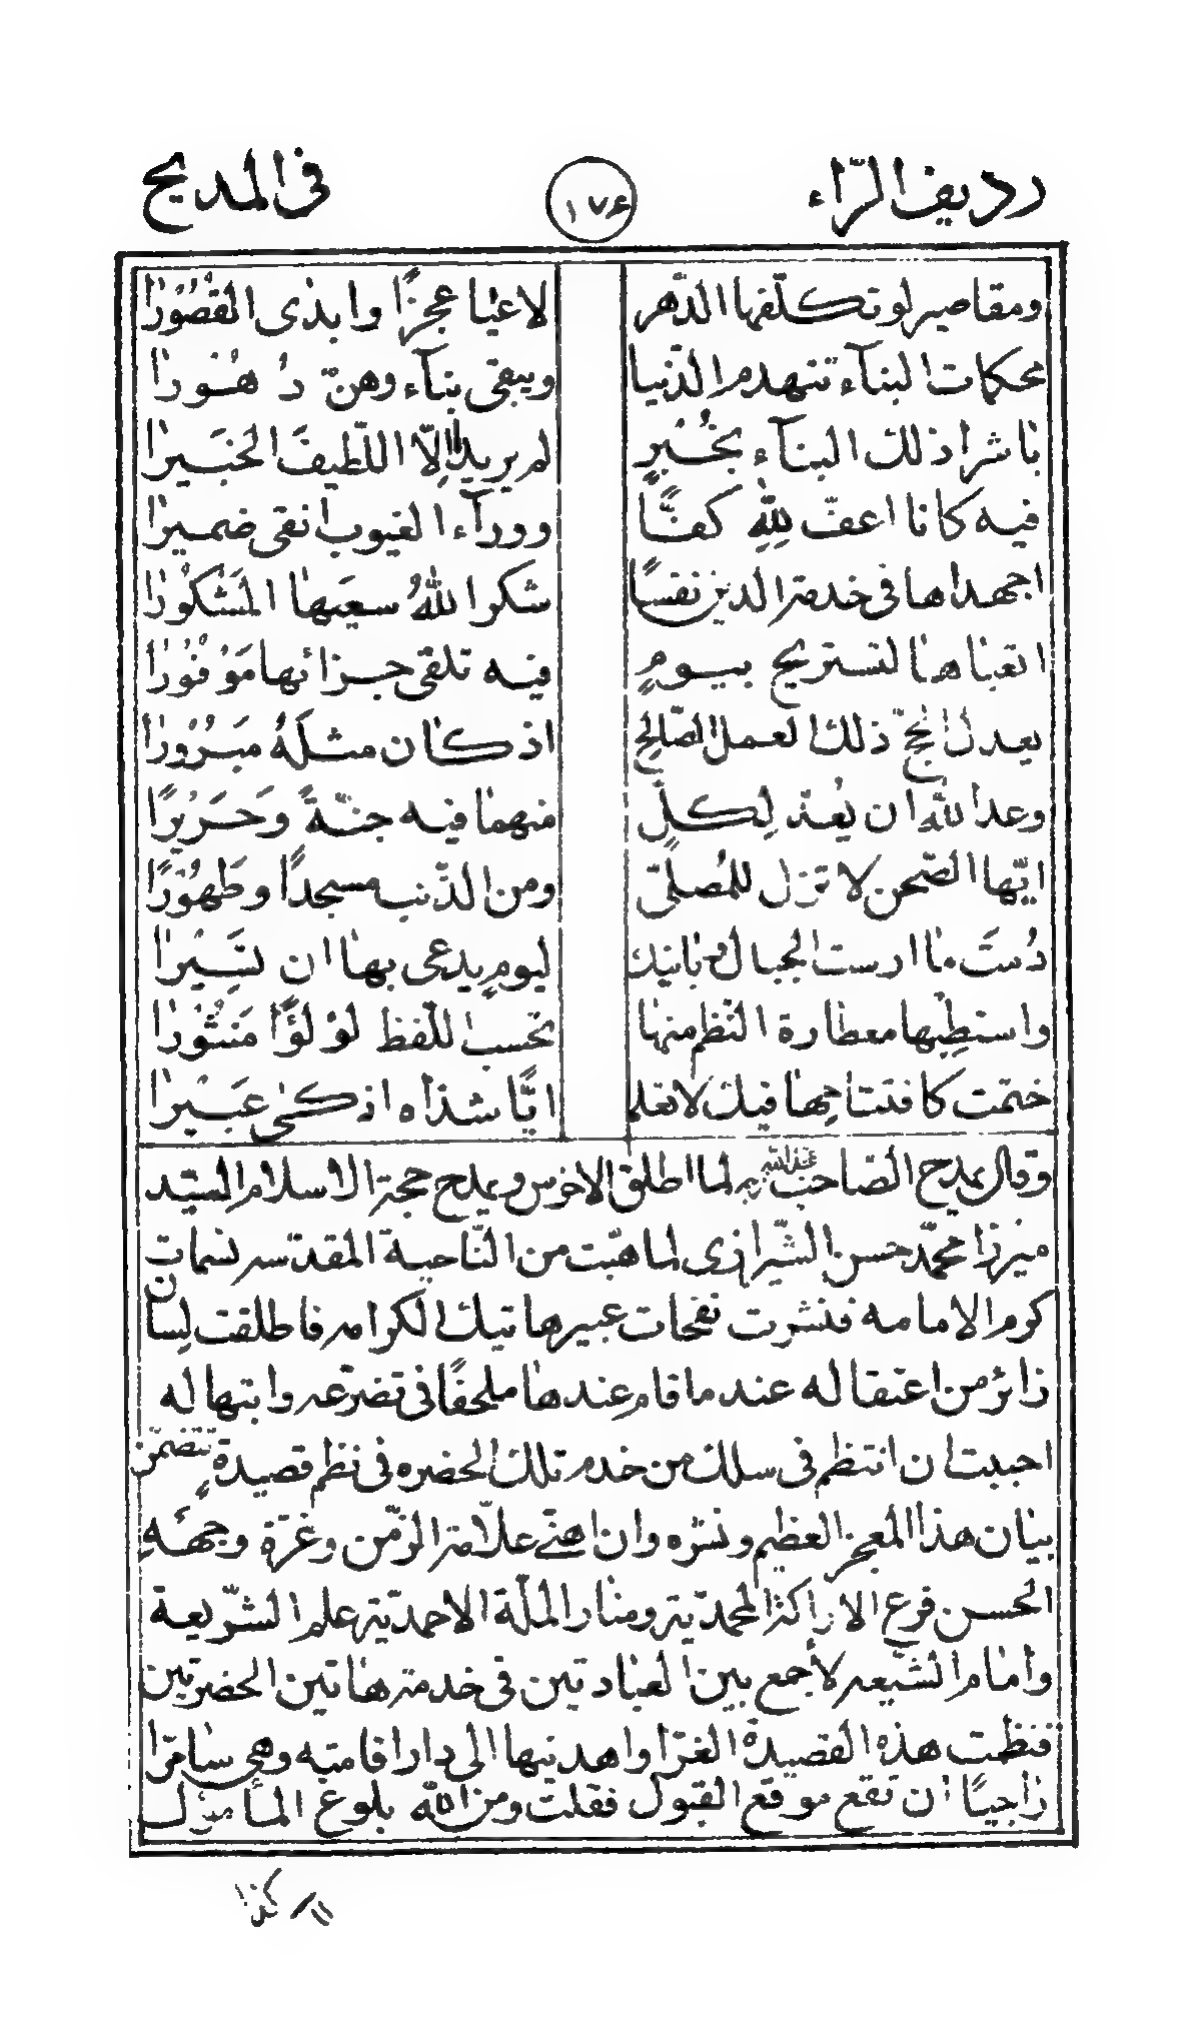 رديف الرّاء ١٧٤ في المديح
ومقاصير لو تكلّفها الدّهر لاعيا عجزًا وابدى القُصُورا
محكمات البنآء تنهدم الدّنيا ويبقى بنآء وهنّ دُهُورا
باشرا ذلك البنآء بخُبْرٍ لم يريدا إلّا اللّطيفَ الخبَيرا
فيه كانا اعفّ لِلّهِ كفًّا وورآء الغيوب انقى ضميرا
اجهداها في خدمة الدين نفسًا شكر اللهُ سعيَها المَشْكوُرا
اتعباها لتستريح بيومٍ فيه تلقى جزائها مَوْفُوُرا
يعدل الحجّ ذلك العمل الصّالح اذ كان مثلَهُ مبَرُوُرا
وعد الله ان يُعدّ لِكلٍ منهما فيه جنّةً وَحَرَيْرًا
ايّها الصّحن لا تزل للمُصلّى ومن الذّنب مسجدًا وطَهُوْرًا
دُمتَ ما ارست الجبال وبانيك ليومٍ يدعى بها ان تَسِيْرا
واستطِبها معطارة النّظم منها تحسب اللّفظ لوْلوًُا مَنثُوُرا
ختمت كافتتاحها فيك لا نعلم ايًّا شذاه اذكىٰ عَبَيْرا
وقال يمدح الصّاحب عجل الله فرجه لما اطلق الاخرس ويمدح حجة الاسلام السيّد
ميرزا محمّد حسن الشّيرازى لما هبّت من النّاحية المقدّسة نسمات
كرم الامامه فنشرت نفحات عبيرها تيك الكرامه فاطلقت لسان
زائر من اعتقاله عند ما قام عندها ملحفًا في تضرّعه وابتهاله
احببت ان انتظم فى سلك من خدم تلك الحضره فى نظم قصيدةٍ تتضمّن
بيان هذا المعجز العظيم ونشره وان اهنّے علاّمة الزمّن وغرّة وجهه
الحسن فرع الاراكة المحمّديّة ومنار الملّة الاحمديّة علم الشّريعة
وامام الشّيعه لأجمع بين العبادتين في خدمة هاتين الحضرتين
فنظمت هذه القصيدة الغرّا واهديتها الى دار اقامته وهى سامرّا
راجيًا ان تقع موقع القبول فقلت ومن الله بلوغ المأمول
كذا